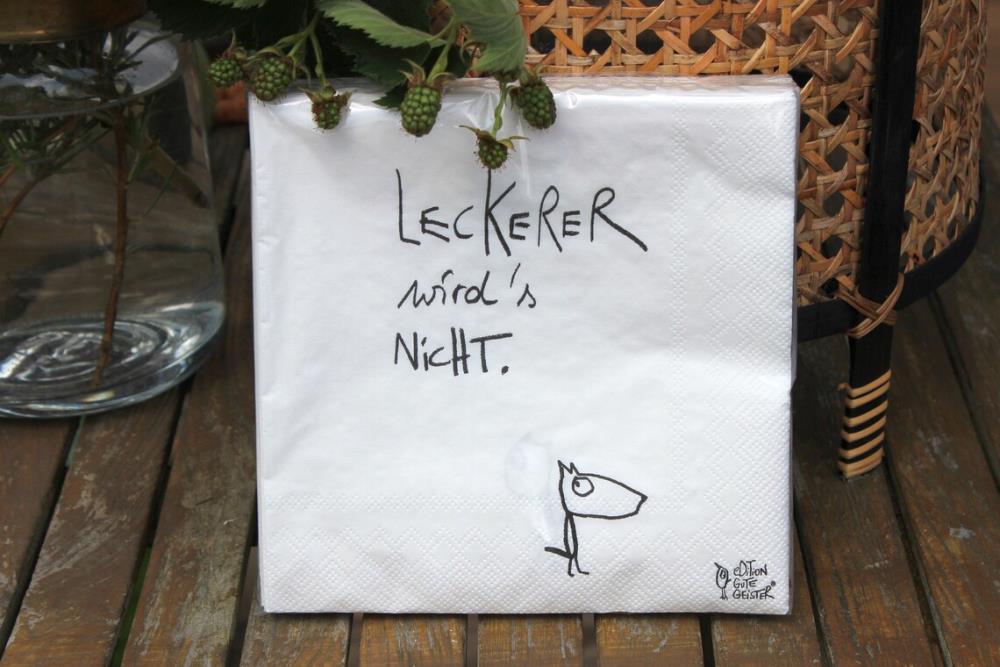 LECKERER
wird's
NICHT.
EDITION
GUTE
GEISTER®